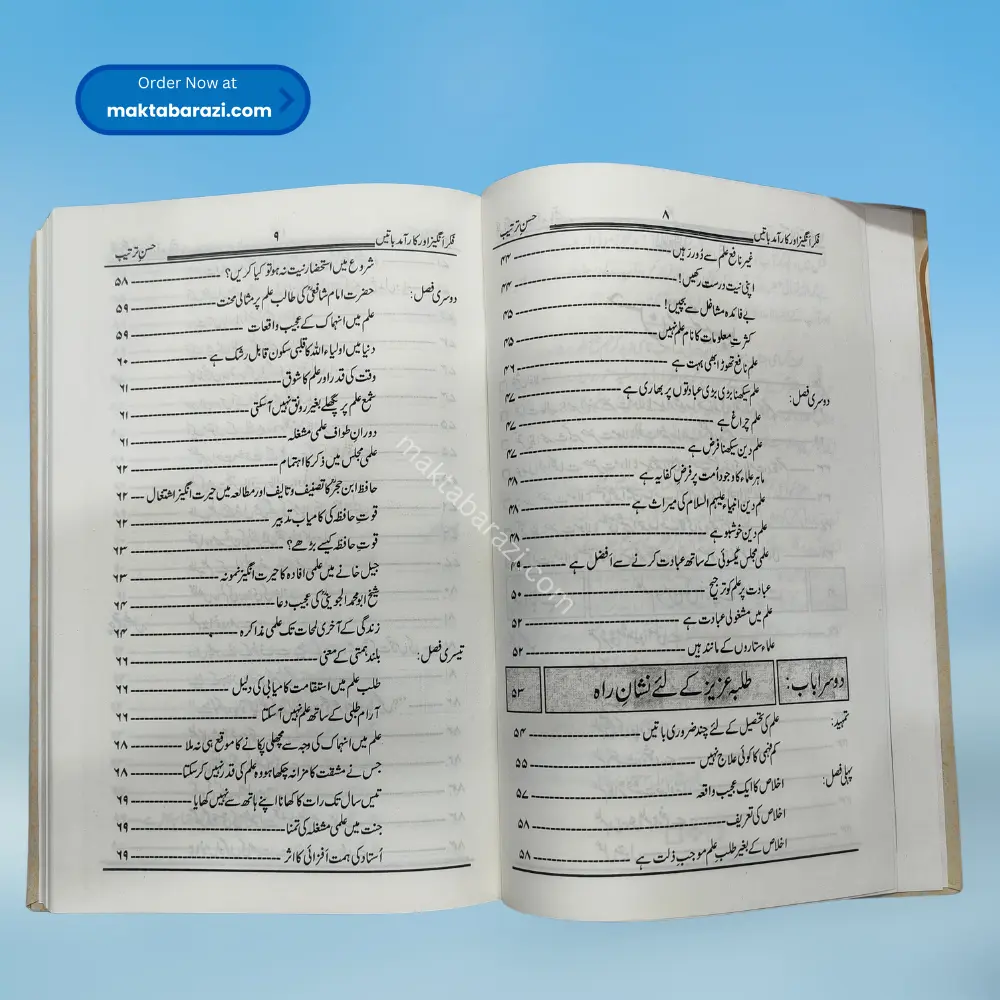 Order Now at
maktabarazi.com
فکر انگیز اور کار آمد باتیں ۸ حسنِ ترتیب
غیر نافع علم سے دُور رہیں ۴۴
اپنی نیت درست رکھیں! ۴۴
بے فائدہ مشاغل سے بچیں! ۴۵
کثرتِ معلومات کا نام علم نہیں ۴۵
علم نافع تھوڑا بھی بہت ہے ۴۶
دوسری فصل: علم سیکھنا بڑی بڑی عبادتوں پر بھاری ہے ۴۷
علم چراغ ہے ۴۷
علم دین سیکھنا فرض ہے ۴۷
ماہر علماء کا وجود اُمت پر فرضِ کفایہ ہے ۴۸
علم دین انبیاء علیہم السلام کی میراث ہے ۴۸
علم دین خوشبو ہے ۴۸
علمی مجلس یکسوئی کے ساتھ عبادت کرنے سے افضل ہے ۴۹
عبادت پر علم کو ترجیح ۵۰
علم میں مشغولی عبادت ہے ۵۲
علماء ستاروں کے مانند ہیں ۵۲
دوسرا باب: طلبہ عزیز کے لئے نشانِ راہ ۵۳
تمہید: علم کی تحصیل کے لئے چند ضروری باتیں ۵۴
کم فہمی کا کوئی علاج نہیں ۵۵
پہلی فصل: اخلاص کا ایک عجیب واقعہ ۵۷
اخلاص کی تعریف ۵۸
اخلاص کے بغیر طلبِ علم موجبِ ذلت ہے ۵۸
فکر انگیز اور کار آمد باتیں ۹ حسنِ ترتیب
شروع میں استحضارِ نیت نہ ہو تو کیا کریں؟ ۵۸
دوسری فصل: حضرت امام شافعیؒ کی طالب علم پر مثالی محنت ۵۹
علم میں انہماک کے عجیب واقعات ۵۹
دنیا میں اولیاء اللہ کا قلبی سکون قابل رشک ہے ۶۰
وقت کی قدر اور علم کا شوق ۶۱
شمع علم پر پگھلے بغیر رونق نہیں آسکتی ۶۱
دورانِ طواف علمی مشغلہ ۶۱
علمی مجلس میں ذکر کا اہتمام ۶۲
حافظ ابن حجرؒ کا تصنیف و تالیف اور مطالعہ میں حیرت انگیز اشتغال ۶۲
قوتِ حافظہ کی کامیاب تدبیر ۶۲
قوتِ حافظہ کیسے بڑھے؟ ۶۳
جیل خانے میں علمی افادہ کا حیرت انگیز نمونہ ۶۳
شیخ ابو محمد الجوینیؒ کی عجیب دعا ۶۴
زندگی کے آخری لمحات تک علمی مذاکرہ ۶۴
تیسری فصل: بلند ہمتی کے معنی ۶۶
طلب علم میں استقامت کامیابی کی دلیل ۶۶
آرام طلبی کے ساتھ علم نہیں آسکتا ۶۶
علم میں انہماک کی وجہ سے مچھلی پکانے کا موقع ہی نہ ملا ۶۸
جس نے مشقت کا مزا نہ چکھا ہو وہ علم کی قدر نہیں کر سکتا ۶۸
تیس سال تک رات کا کھانا اپنے ہاتھ سے نہیں کھایا ۶۹
جنت میں علمی مشغلہ کی تمنا ۶۹
اُستاد کی ہمت افزائی کا اثر ۶۹
maktabarazi.com